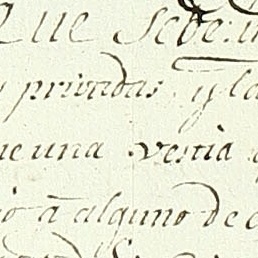 Que se be
y privadas, y la
ue una vestia
io â alguno de